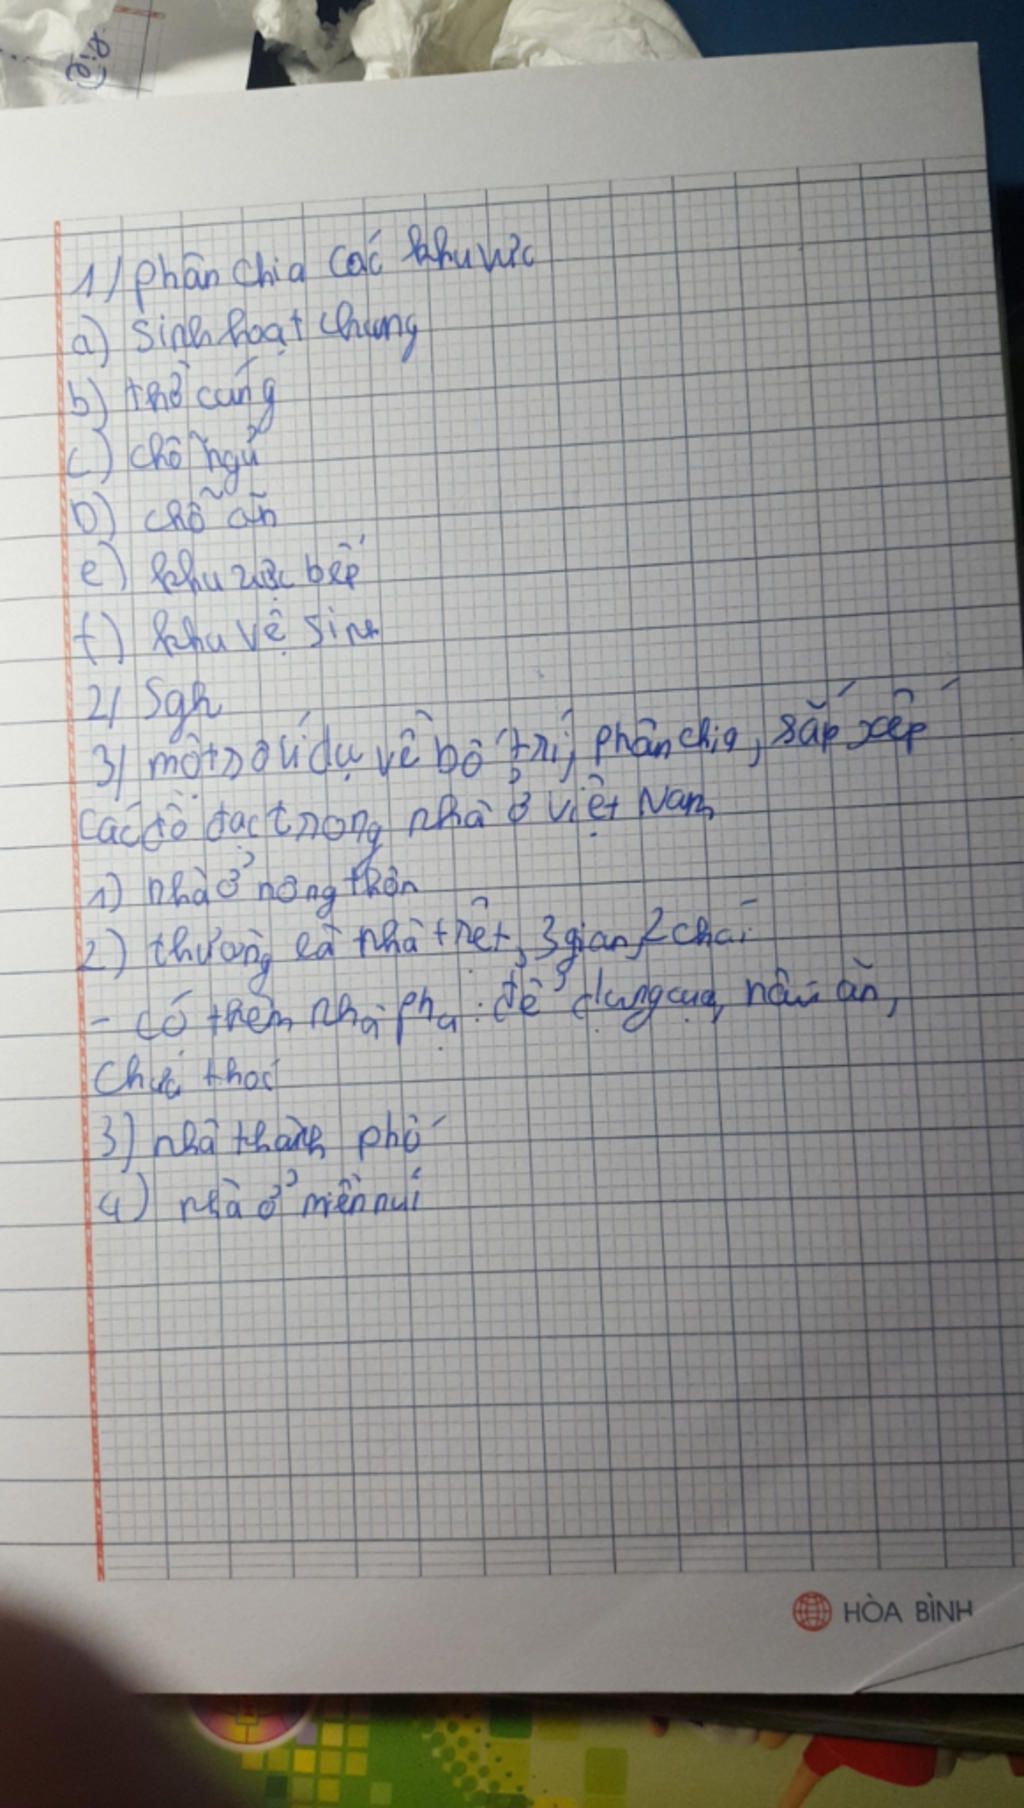 1/ phân chia các khu vực
a) sinh hoạt chung
b) thờ cúng
c) chỗ ngủ
D) chỗ ăn
e) khu vực bếp
f) khu vệ sinh
2/ Sgk
3/ một số ví dụ về bố trí, phân chia, sắp xếp
các đồ đạc trong nhà ở việt Nam
1) nhà ở nông thôn
2) thường là nhà trệt, 3 gian, 2 chái
- có thêm nhà phụ: để dụng cụ, nấu ăn,
chứa thóc
3) nhà thành phố
4) nhà ở miền núi
HÒA BÌNH